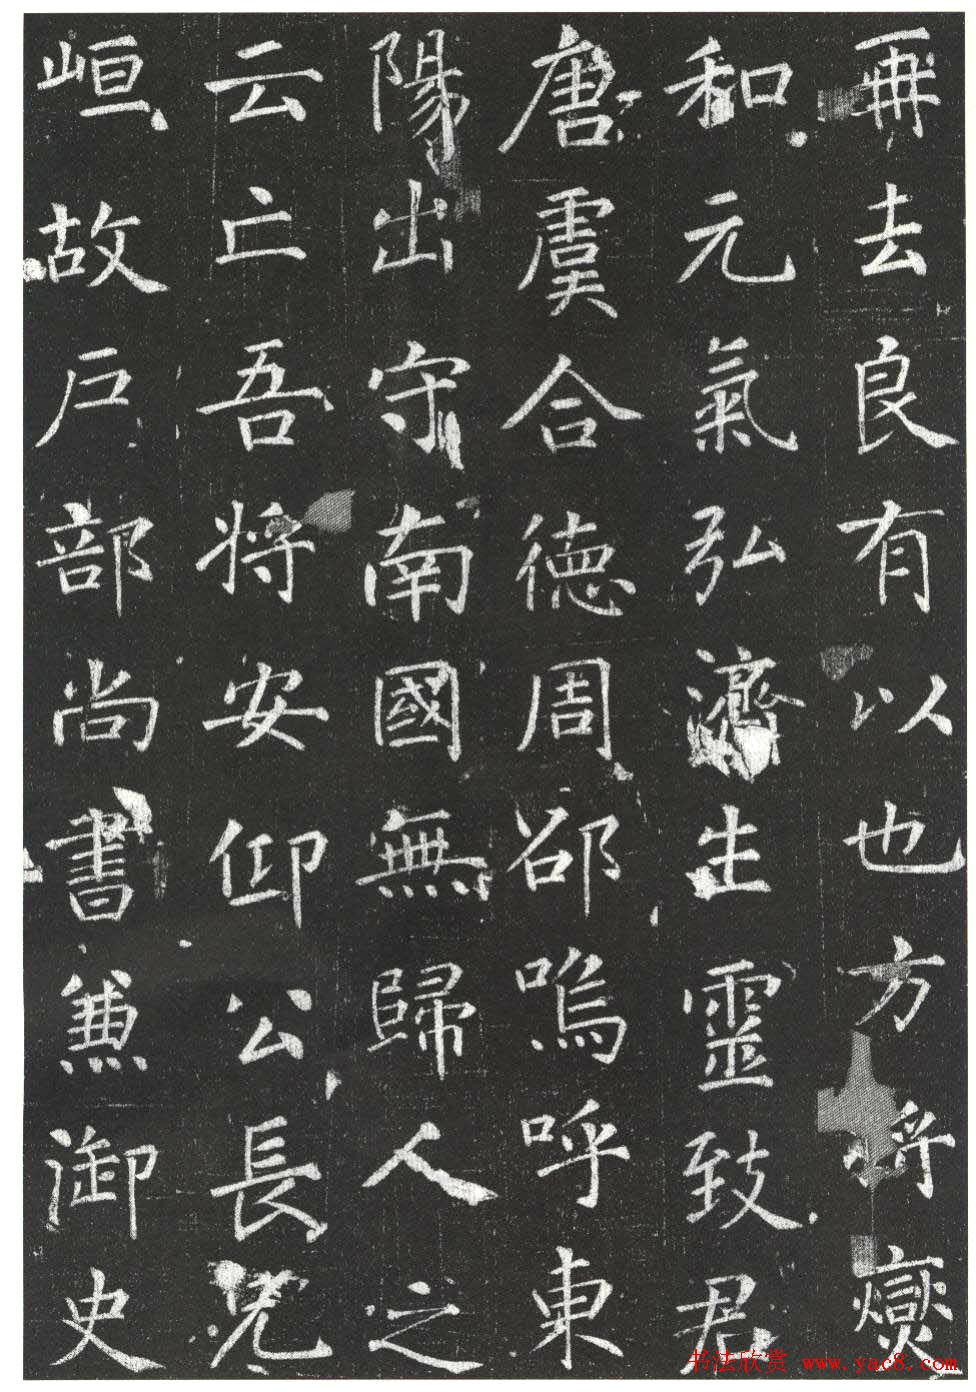 再去良有以也方将燮
和元氣弘濟生靈致君
唐虞合德周邵嗚呼東
陽出守南國無歸人之
云亡吾將安仰公長兄
峘故戶部尚書兼御史
书法欣赏 www.yac8.com